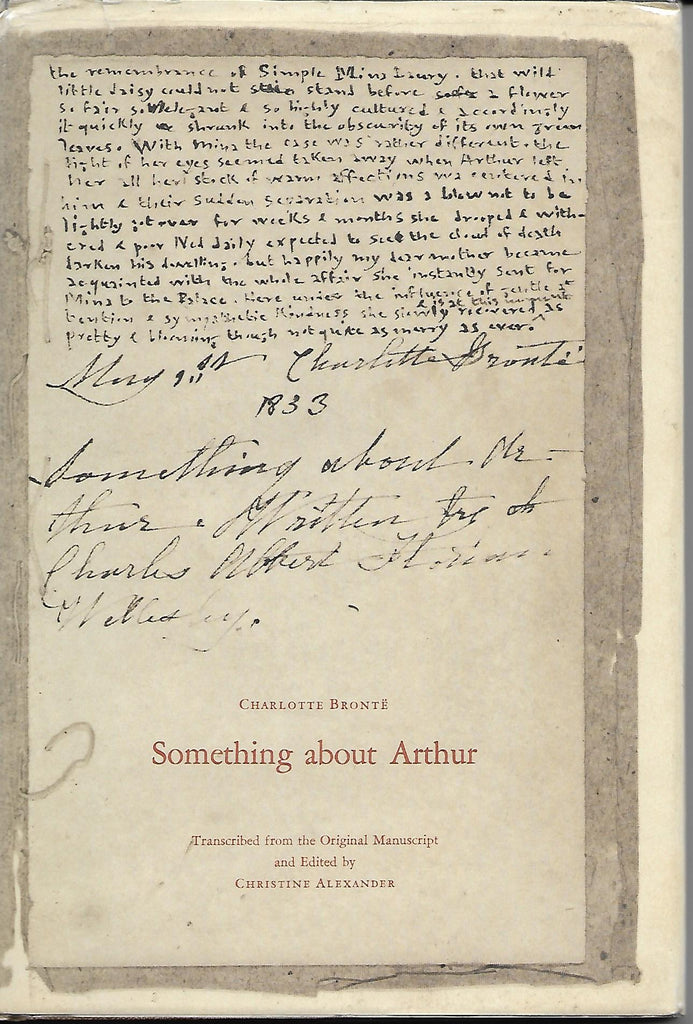 the remembrance of Simple Mina Laury. that wild
little daisy could not stand before a flower
so fair so elegant & so highly cultured & accordingly
it quickly shrunk into the obscurity of its own green
leaves. With Mina the case was rather different. the
light of her eyes seemed taken away when Arthur left
her all her stock of warm affections was centered in
him & their sudden separation was a blow not to be
lightly got over for weeks & months she drooped & with-
ered & poor Ned daily expected to see the cloud of death
darken his dwelling. but happily my dear mother became
acquainted with the whole affair she instantly sent for
Mina to the Palace. Here under the influence of gentle at
tention & sympathetic kindness she slowly recovered & is at this moment as
pretty & blooming though not quite as merry as ever.
May 1st Charlotte Brontë
1833
Something about Ar-
thur. Written by
Charles Albert Florian
Wellesley.
CHARLOTTE BRONTË
Something about Arthur
Transcribed from the Original Manuscript
and Edited by
CHRISTINE ALEXANDER